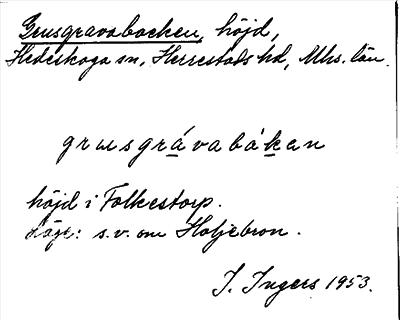 Grusgravabacken, höjd,
Hedeskoga sn, Herrestads hd, Mhs. län.
grusgrávabákan
höjd i Folkestorp.
Läge: s.v. om Holjebron.
I. Ingers 1953.